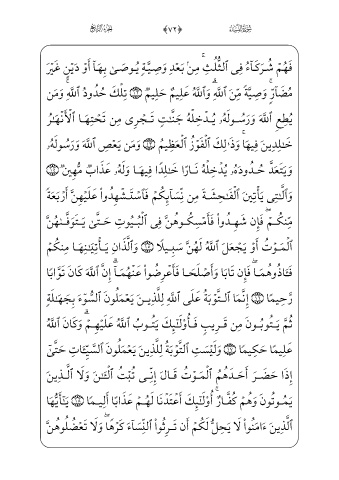 سُورَةُ النِّسَاءِ ﴿٧٢﴾ الجُزْءُ الرَّابِعُ
فَهُمْ شُرَكَآءُ فِى ٱلثُّلُثِ ۚ مِنۢ بَعْدِ وَصِيَّةٍ يُوصَىٰ بِهَآ أَوْ دَيْنٍ غَيْرَ
مُضَآرٍّ ۚ وَصِيَّةً مِّنَ ٱللَّهِ ۗ وَٱللَّهُ عَلِيمٌ حَلِيمٌ ١٢ تِلْكَ حُدُودُ ٱللَّهِ ۚ وَمَن
يُطِعِ ٱللَّهَ وَرَسُولَهُۥ يُدْخِلْهُ جَنَّـٰتٍ تَجْرِى مِن تَحْتِهَا ٱلْأَنْهَـٰرُ
خَـٰلِدِينَ فِيهَا ۚ وَذَٰلِكَ ٱلْفَوْزُ ٱلْعَظِيمُ ١٣ وَمَن يَعْصِ ٱللَّهَ وَرَسُولَهُۥ
وَيَتَعَدَّ حُدُودَهُۥ يُدْخِلْهُ نَارًا خَـٰلِدًا فِيهَا وَلَهُۥ عَذَابٌ مُّهِينٌ ١٤
وَٱلَّـٰتِى يَأْتِينَ ٱلْفَـٰحِشَةَ مِن نِّسَآئِكُمْ فَٱسْتَشْهِدُوا۟ عَلَيْهِنَّ أَرْبَعَةً
مِّنكُمْ ۖ فَإِن شَهِدُوا۟ فَأَمْسِكُوهُنَّ فِى ٱلْبُيُوتِ حَتَّىٰ يَتَوَفَّىٰهُنَّ
ٱلْمَوْتُ أَوْ يَجْعَلَ ٱللَّهُ لَهُنَّ سَبِيلًا ١٥ وَٱلَّذَانِ يَأْتِيَـٰنِهَا مِنكُمْ
فَـَٔاذُوهُمَا ۖ فَإِن تَابَا وَأَصْلَحَا فَأَعْرِضُوا۟ عَنْهُمَآ ۗ إِنَّ ٱللَّهَ كَانَ تَوَّابًا
رَّحِيمًا ١٦ إِنَّمَا ٱلتَّوْبَةُ عَلَى ٱللَّهِ لِلَّذِينَ يَعْمَلُونَ ٱلسُّوٓءَ بِجَهَـٰلَةٍ
ثُمَّ يَتُوبُونَ مِن قَرِيبٍ فَأُو۟لَـٰٓئِكَ يَتُوبُ ٱللَّهُ عَلَيْهِمْ ۗ وَكَانَ ٱللَّهُ
عَلِيمًا حَكِيمًا ١٧ وَلَيْسَتِ ٱلتَّوْبَةُ لِلَّذِينَ يَعْمَلُونَ ٱلسَّيِّـَٔاتِ حَتَّىٰٓ
إِذَا حَضَرَ أَحَدَهُمُ ٱلْمَوْتُ قَالَ إِنِّى تُبْتُ ٱلْـَٔـٰنَ وَلَا ٱلَّذِينَ
يَمُوتُونَ وَهُمْ كُفَّارٌ ۚ أُو۟لَـٰٓئِكَ أَعْتَدْنَا لَهُمْ عَذَابًا أَلِيمًا ١٨ يَـٰٓأَيُّهَا
ٱلَّذِينَ ءَامَنُوا۟ لَا يَحِلُّ لَكُمْ أَن تَرِثُوا۟ ٱلنِّسَآءَ كَرْهًا ۖ وَلَا تَعْضُلُوهُنَّ